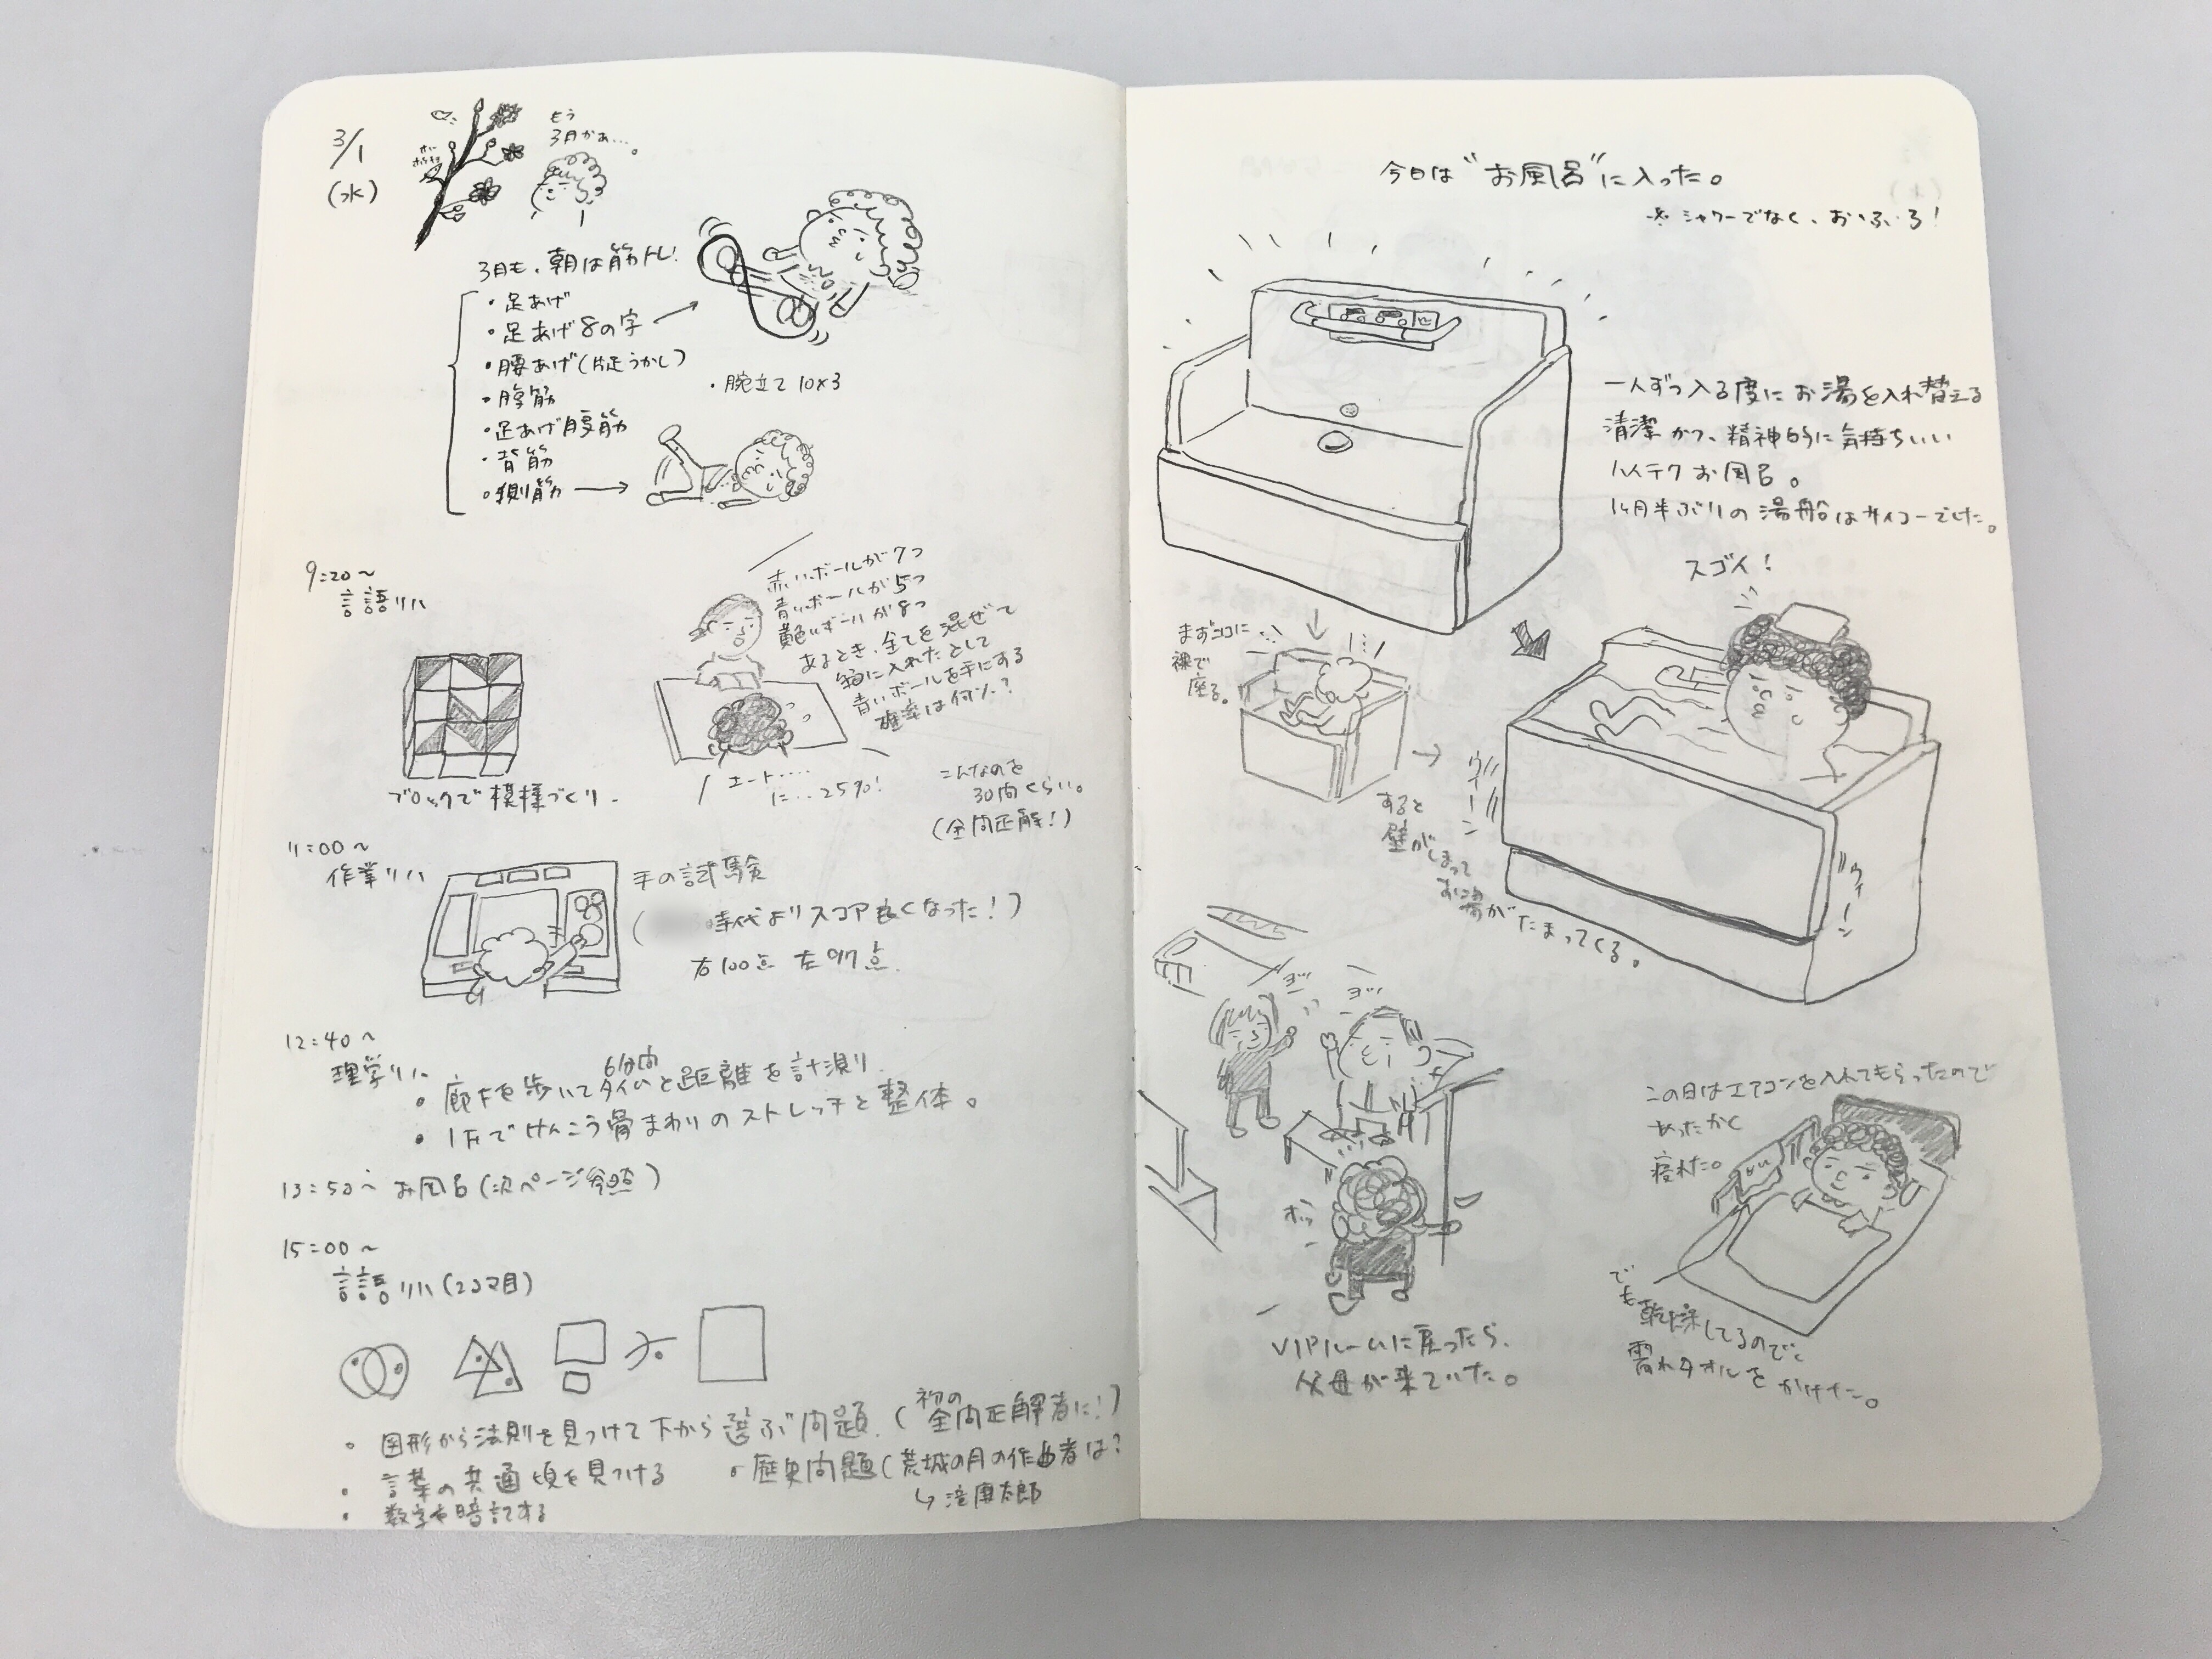 3/1
(水)
もう
3月かぁ…。
3月も、朝は筋トレ!
・足あげ
・足あげ8の字
・腰あげ(片足うかし)
・腹筋
・足あげ腹筋
・背筋
・側筋
・腕立て 10×3
9:20〜
言語リハ
ブロックで模様づくり.
赤いボールが7つ
青いボールが5つ
黄色いボールが8つ
あるとき、全てを混ぜて
箱に入れたとして
青いボールを手にする
確率は何%?
エート….
に…25%!
こんなのを
30問くらい。
(全問正解!)
11:00〜
作業リハ
手の試験
(時代よりスコア良くなった!)
右100点 左97点.
12:40〜
理学リハ
・廊下を歩いて6分間タイムと距離を計測
・1Fでけんこう骨まわりのストレッチと整体。
13:50〜 お風呂(次ページ参照)
15:00〜
言語リハ(2コマ目)
・図形から法則を見つけて下から選ぶ問題.(初の全問正解者に!)
・言葉の共通項を見つける
・歴史問題(荒城の月の作曲者は?
↳滝廉太郎
・数字を暗記する
今日は"お風呂"に入った。
※シャワーでなく、おふろ!
一人ずつ入る度にお湯を入れ替える
清潔かつ、精神的に気持ちいい
ハイテクお風呂。
1ヶ月半ぶりの湯船はサイコーでした。
まずココに
裸で
座る。
スゴイ!
すると
壁がしまって
お湯がたまってくる。
ウィーン
ウィーン
ヨッ
ヨッ
オッ
VIPルームに戻ったら、
父母が来ていた。
この日はエアコンを入れてもらったので
あったかく
寝れた。
でも乾燥してるので、
濡れタオルをかけた。